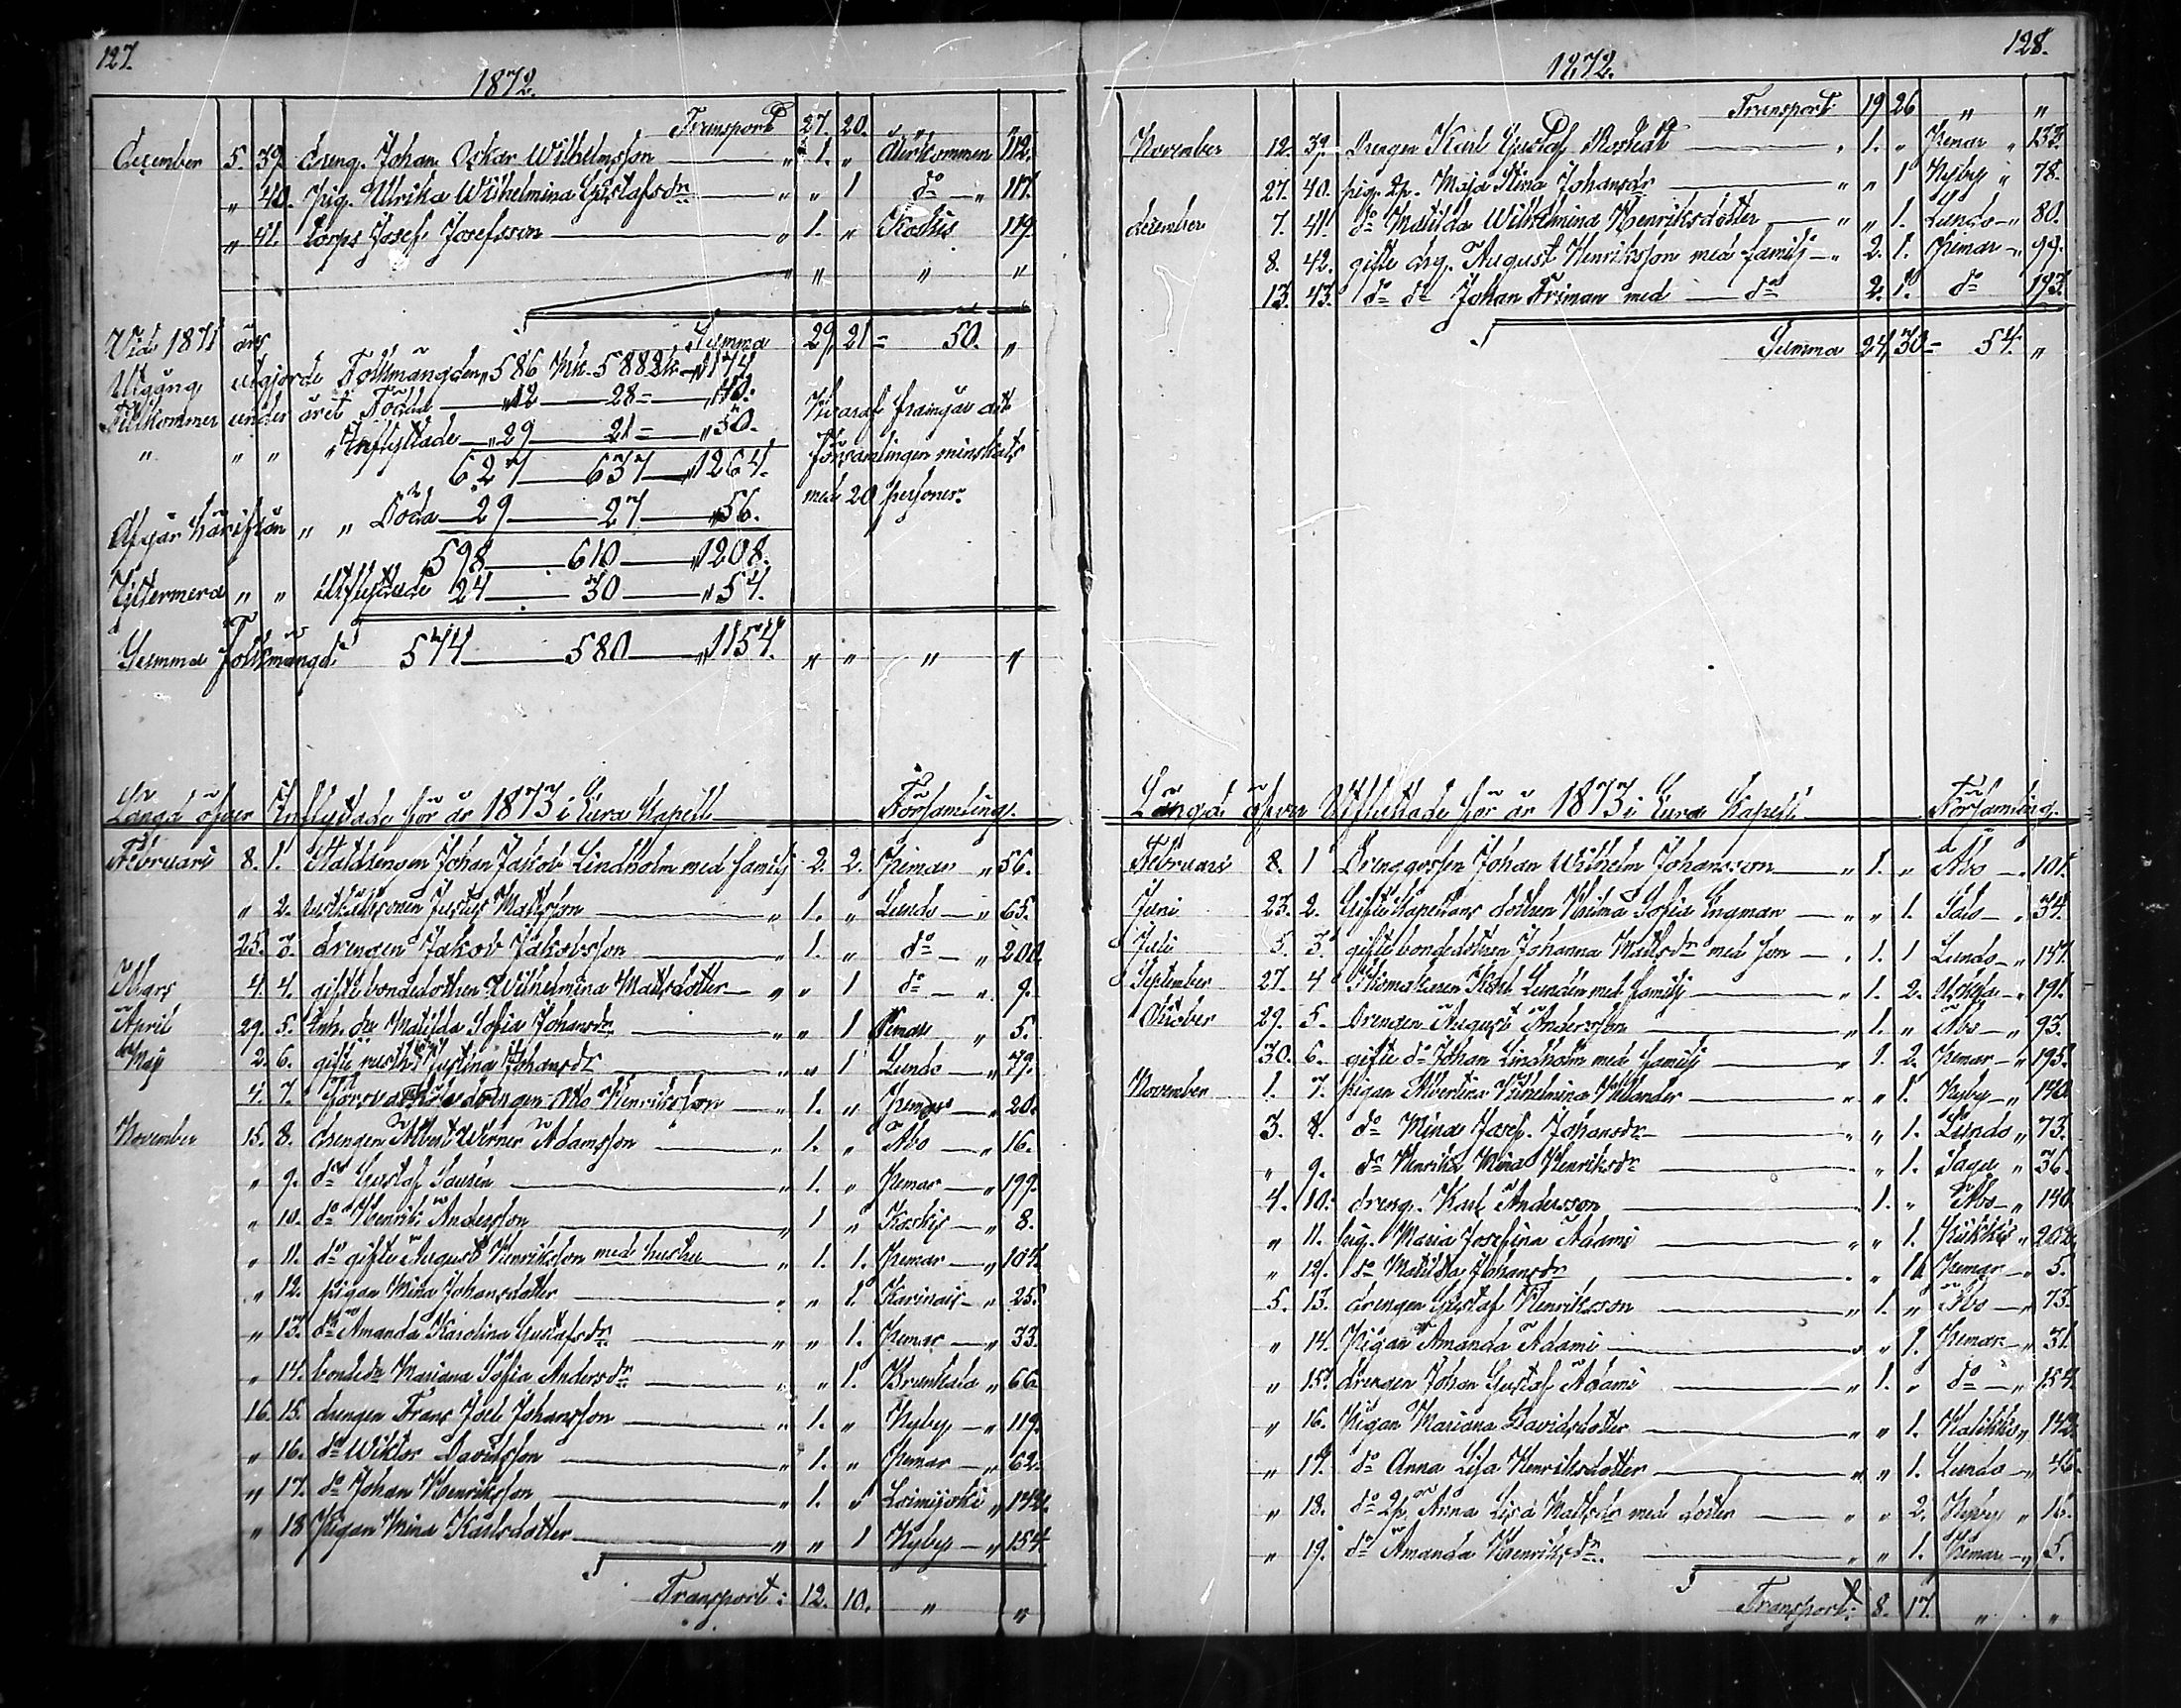 127.
1872.
Transport 27. 20. „ „
December 5. 39. dreng. Johan Oskar Wilhelmsson „ 1. „ 112.
„ 40. pig. Ulrika Wilhelmina Gustafsdr „ „ 1 do „ 117.
„ 41. torps Josef Josefsson „ 1. „ Koskis 119.
„ „ „ „
Summa 29, 21 = 50. „
Vid 1871 års
Utgång utgjorde Folkmängden „ 586 Mk. 588 Qk. „ 1174
Tillkommer under året Födde „ 12 28 = „ 40.
„ „ „ Inflyttade „ 29 21 = „ 50.
627 637 „ 1264.
Hvaraf framgår att
Församlingen minskats
med 20 personer.
Afgår härifrån „ „ Döda 29 27 „ 56.
598 610 „ 1208.
Ytermera „ „ Utflyttade 24 30 „ 54.
Summa Folkmängd: 574 580 „ 1154. „ „ „ „
Längd öfver Inflyttade för år 1873 i Eura Kapell Församling.
Februari 8. 1. Johan Jakob Lindholm med familj 2. 2. Pemar „ 56.
„ 2. Justus Mattsson „ 1. „ Lundo „ 65.
25. 3. drengen Jakob Jakobsson „ 1. „ do „ 200.
Mars 4. 4. gifte bondedottren Wilhelmina Mattsdotter „ „ 1 do „ 9.
April 29. 5. Enk. Matilda Sofia Johansdr „ „ 1 Pemar „ 5.
Maj 2. 6. gifte Justina Johansdr „ „ 1 Lundo „ 79.
4. 7. drengen Otto Henriksson „ 1. „ Pemar „ 20.
November 15. 8. drengen Albert Werner Adamsson „ 1. „ Åbo „ 16.
„ 9. do Gustaf Saurén „ 1. „ Pemar „ 199.
„ 10. do Henrik Andersson „ 1 „ Koskis „ 8.
„ 11. do gifte August Henriksson med hustru „ 1. 1. Pemar „ 104.
„ 12. pigan Mina Johansdotter „ „ 1. Karinais „ 25.
„ 13. do Amanda Karolina Gustafsdr „ „ 1. Pemar „ 33.
„ 14. bondedr Mariana Sofia Andersdr „ „ 1. Brunkala „ 66.
16. 15. drengen Frans Joel Johansson „ 1. „ Nyby „ 119.
„ 16. do Wiktor Davidsson „ 1. „ Pemar „ 62.
„ 17. do Johan Henriksson „ 1. „ Loimijoki „
„ 18 Pigan Mina Karlsdotter „ „ 1 Nyby „ 154.
Transport: 12. 10. „ „
128.
1872.
Transport 19 26 „ „
November 12. 39. Drengen Karl Gustaf „ 1. „ Pemar „ 133.
27. 40. pig. Maja Stina Johansdr „ „ 1 Nyby „ 78.
December 7. 41. do Matilda Wilhelmina Henriksdotter „ „ 1. Lundo „ 80.
8. 42. gifte drg. August Henriksson med familj „ 2. 1. Pemar „ 99.
13. 43. do do Johan Friman med do 2. 1. do 193.
Summa 24, 30 = 54. „
Längd öfver Utflyttade för år 1873 i Eura Kapell Församling.
Februari 8. 1 Drenggossen Johan Wilhelm Johansson „ 1. „ Åbo „ 101.
Juni 23. 2. Gifte Kapellans dottren Sofia Engman „ „ 1. „ 34.
Juli 5. 3. gifte bondedottren Johanna Mattsdr med son „ 1. 1 Lundo „ 157.
September 27. 4 Lundén med familj „ 1. 2. „ 191.
Oktober 29. 5. Drengen August Andersson „ 1. „ Åbo „ 93.
30. 6. gifte do Johan Lindholm med familj „ 1. 2. Pemar „ 195.
November 1. 7. Pigan Albertina Wilhelmina „ „ 1. Nyby „ 140.
3. 8. do Mina Josef. Johansdr „ „ 1. Lundo „ 73.
„ 9. do Henrika Mina Henriksdr „ „ 1. Sagu „ 36.
4. 10. dreng. Karl Andersson „ 1. „ Åbo „ 140.
„ 11. pig. Maria Josefina Adami „ „ 1. „ 202.
„ 12. do Matilda Johansdr „ „ 1. Pemar „ 5.
5. 13. drengen Gustaf Henriksson „ 1. „ Åbo „ 73.
„ 14. Pigan Amanda Adami „ „ 1. Pemar „ 31.
„ 15. drengen Johan Gustaf Adami „ 1. „ do „ 154.
„ 16. Pigan Mariana Davidsdotter „ „ 1. „ 142.
„ 17. do Anna Lisa Henriksdotter „ „ 1. Lundo „ 46.
„ 18. do Anna Lisa Mattsdr med dotter „ „ 2. Nyby „ 16.
„ 19. do Amanda Henriksdr. „ „ 1. Pemar „ 5.
Transport: 8. 17. „ „